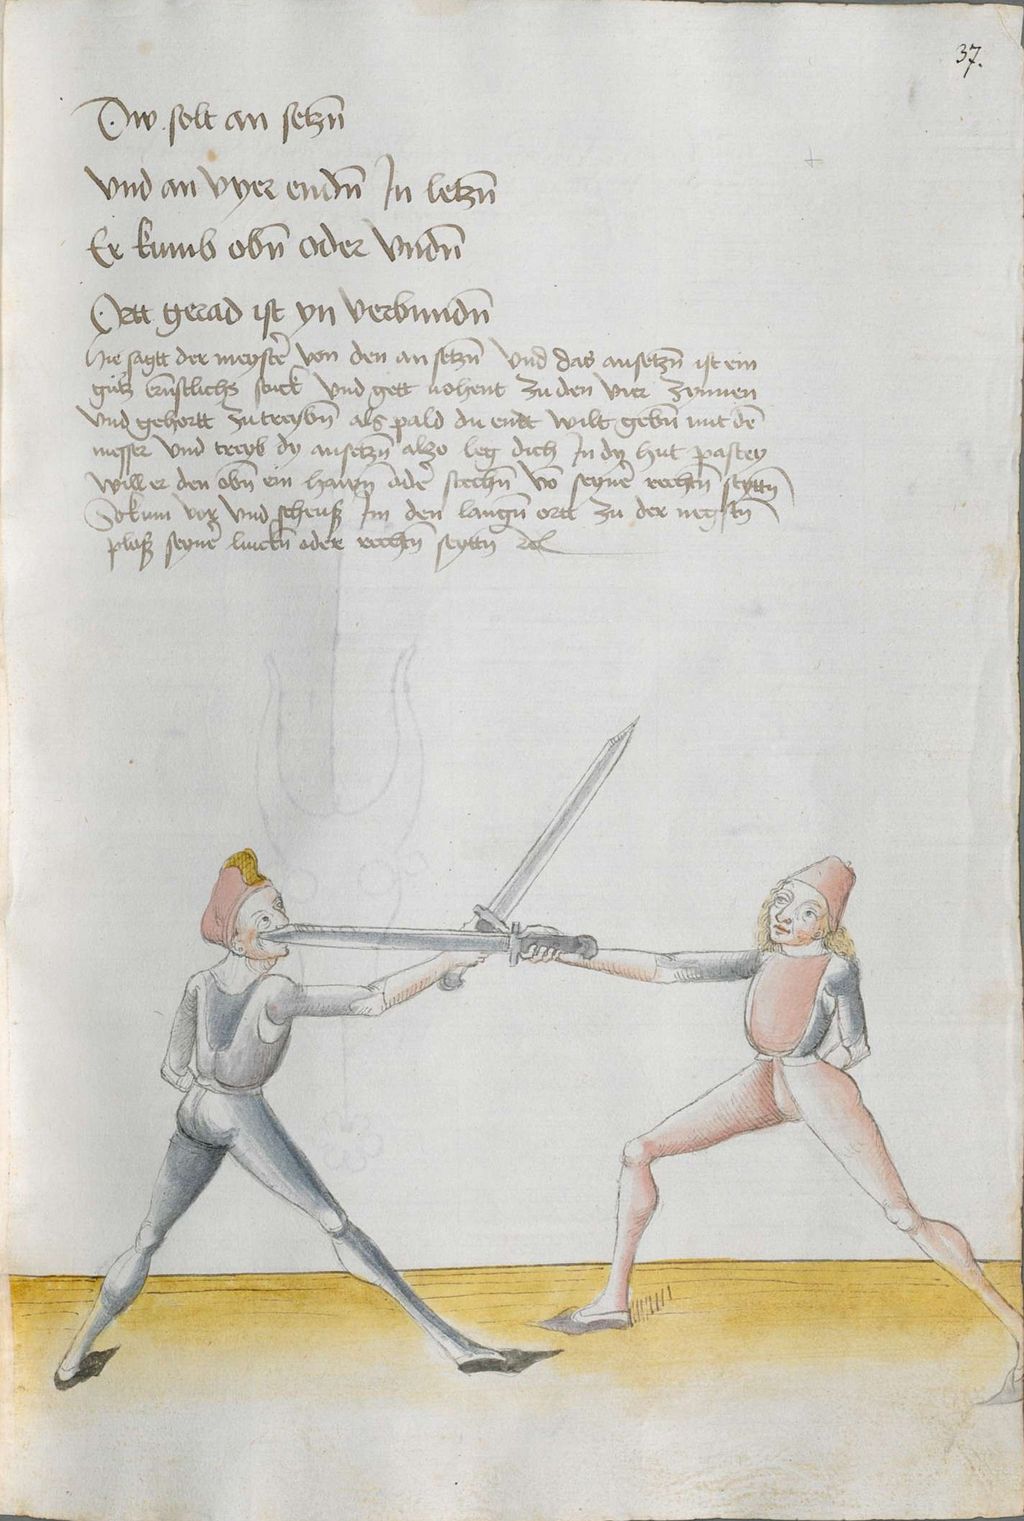 37.
Dw solt an setzn̄
Vnd an vyer endn̄ Jn letzn̄
Er kumb obn̄ oder vndn̄
Ortt gerad ist yn verbundn̄
Hie sagtt der meyster̄ von den an setzn̄ Vnd das ansetzn̄ ist ein
gutz ernstlichs stuck Vnd gett nohent zu den vier zynnen
Vnd gehortt zu treybn̄ als pald du endt wilt gebn̄ mit dē
messer Vnd treyb dy ansetzn̄ alzo leg dich Jn dy hut pastey
will er den obn̄ ein hawn̄ oder̄ stechn̄ vō seyner̄ rechtn̄ seyttn̄
So kum vor Vnd scheuß Jm den langn̄ ortt zu der negstn̄
ploß seyner̄ linckn̄ oder rechtn̄ seyttn̄